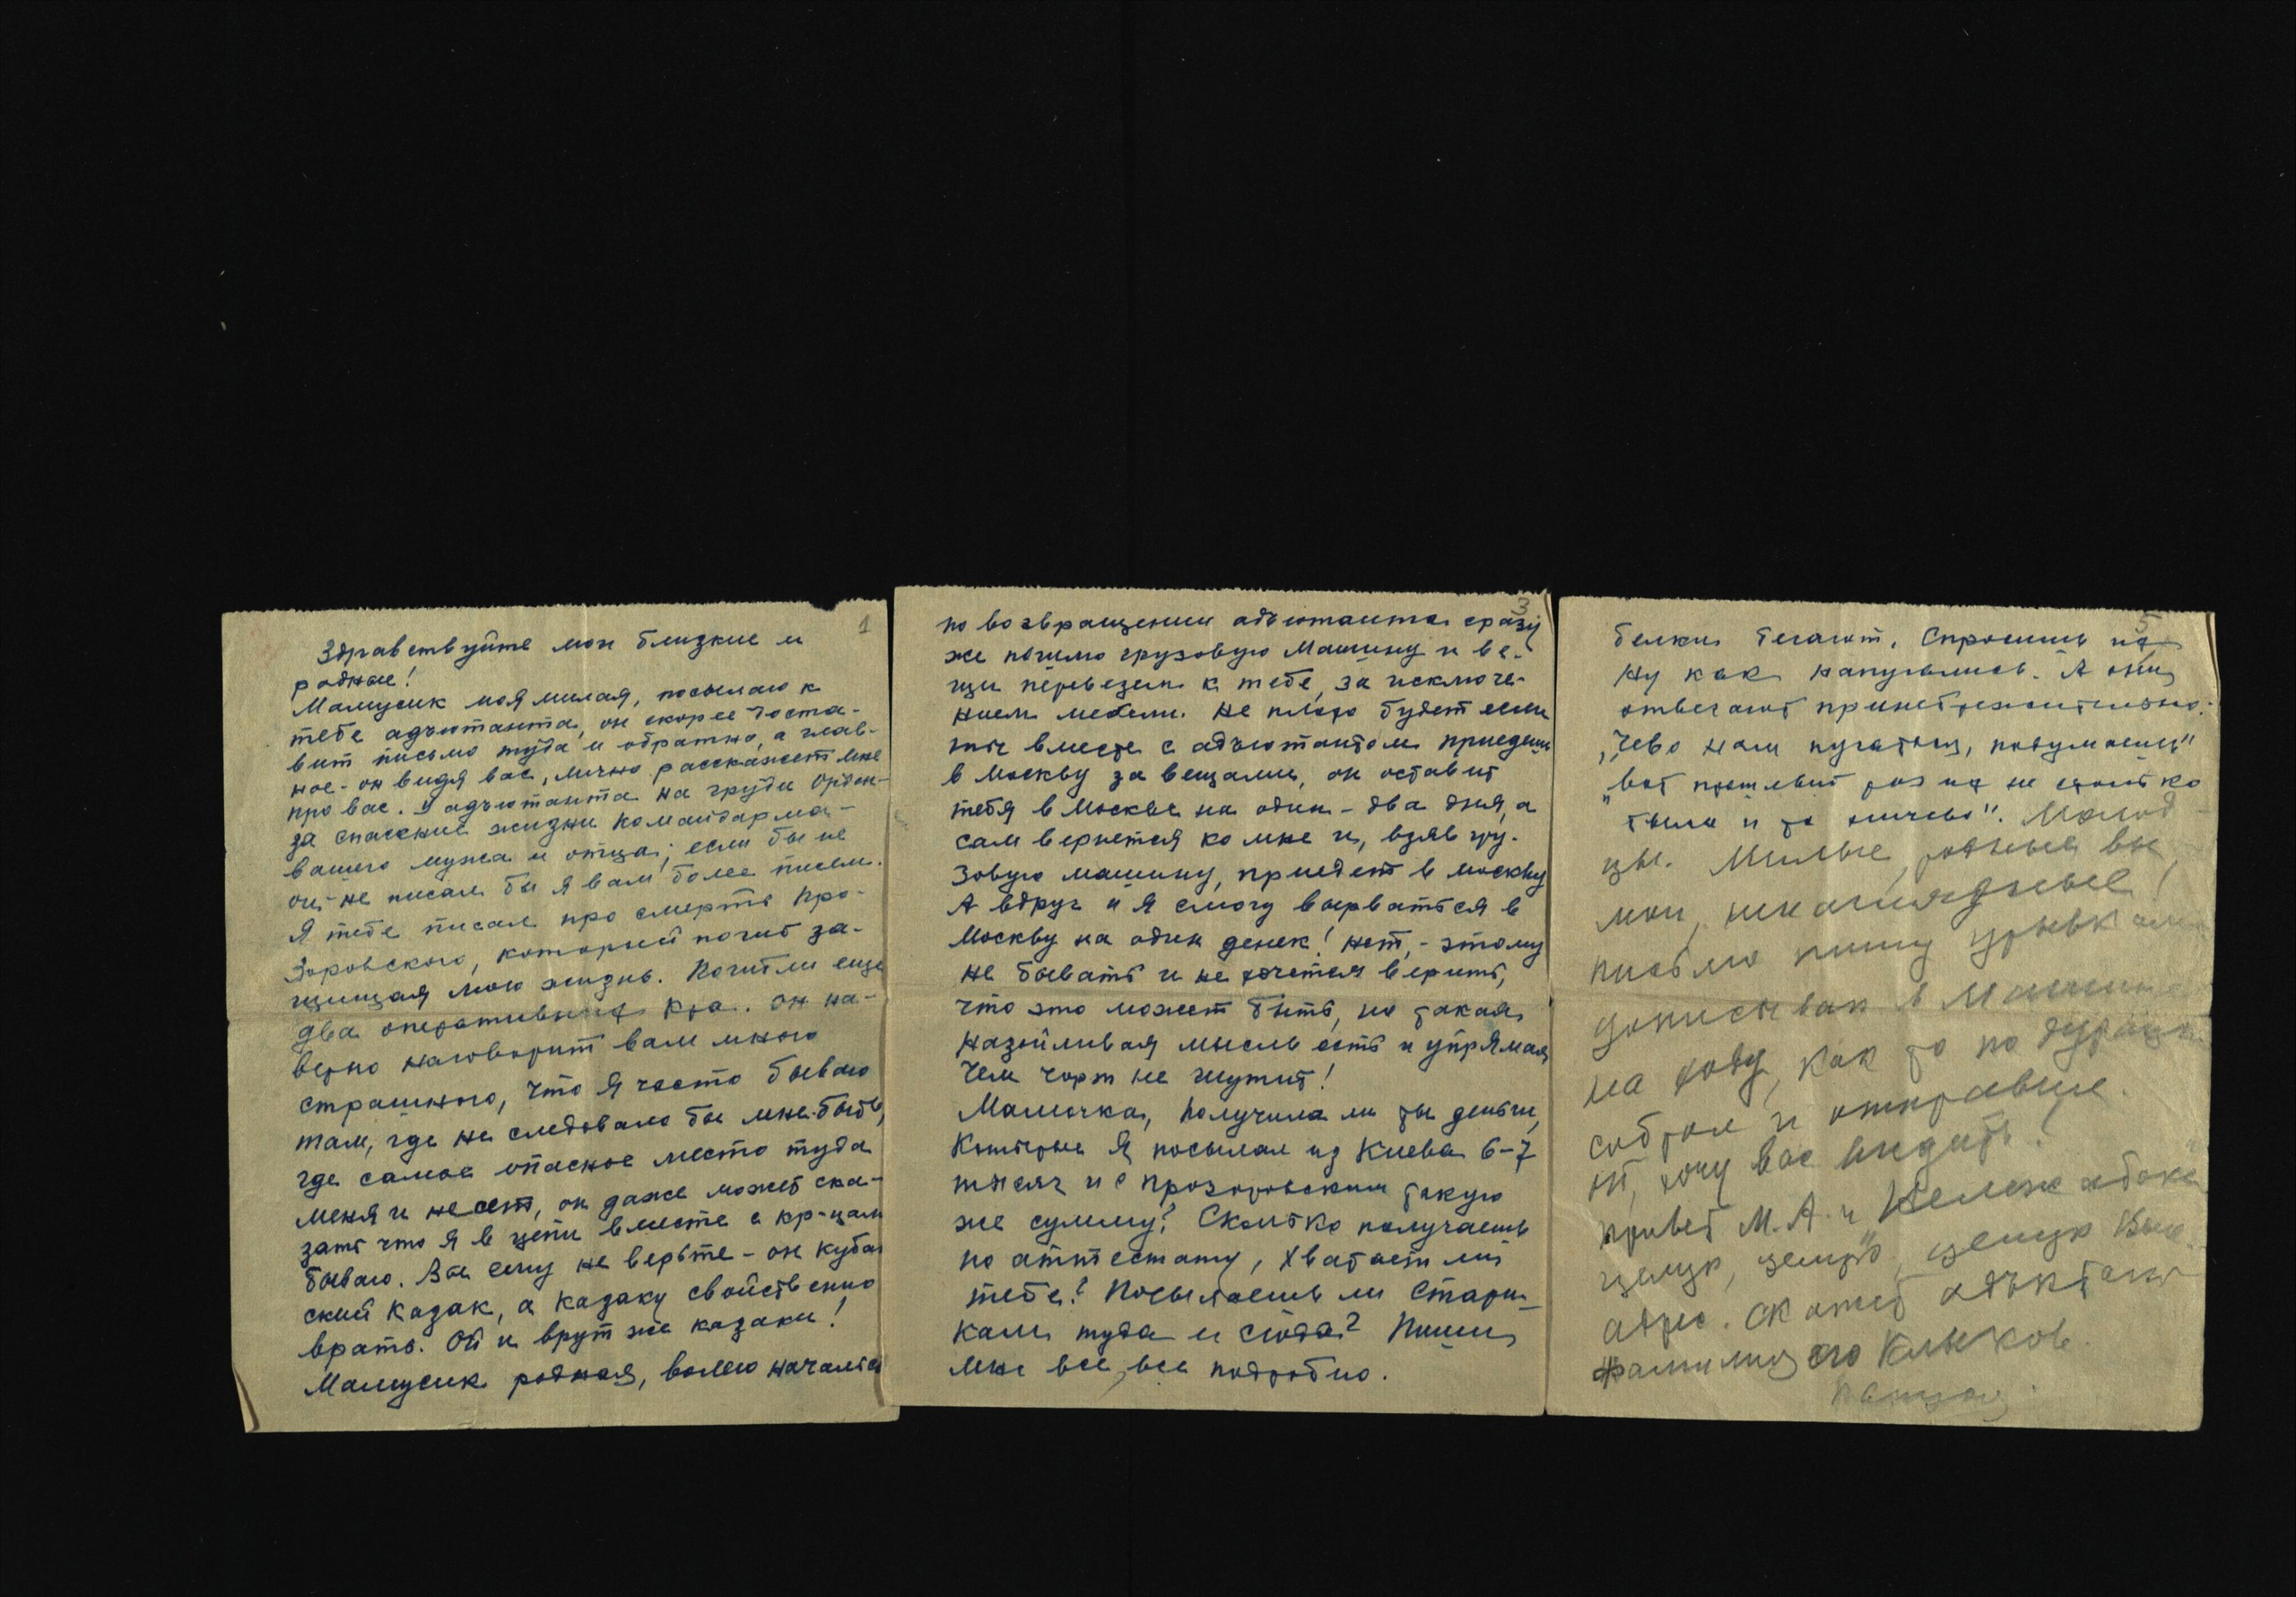 1
Здравствуйте мои близкие и
родные!
Мамусик моя милая, посылаю к
тебе адъютанта, он скорее доста-
вит письмо туда и обратно, а глав-
ное - он видя вас, лично расскажет мне
про вас. У адъютанта на груди орден -
за спасение жизни командарма -
вашего мужа и отца; если бы не
он - не писал бы я вам более писем.
Я тебе писал про смерть Про-
зоровского, который погиб за-
щищая мою жизнь. Погибли еще
два оперативных к-ра. Он на-
верно наговорит вам много
страшного, что я часто бываю
там, где не следовало бы мне быть,
где самое опасное место туда
меня и несет, он даже может ска-
зать что я в цепи вместе с кр-цам
бываю. Вы ему не верьте - он кубан
ский казак, а казаку свойственно
врать. Ой и врут же казаки!
Мамусик родная, волею начальс
3
по возвращении адъютанта сразу
же пошлю грузовую машину и ве-
щи перевезем к тебе, за исключе-
нием мебели. Не плохо будет если
ты вместе с адъютантом приедешь
в Москву за вещами, он оставит
тебя в Москве на один - два дня, а
сам вернется ко мне и, взяв гру-
зовую машину, приедет в Москву
А вдруг и я смогу вырваться в
Москву на один денек! Нет, - этому
не бывать и не хочется верить,
что это может быть, но такая
назойливая мысль есть и упрямая,
Чем чорт не шутит!
Мамочка, получила ли ты деньги,
которые я посылал из Киева 6-7
тысяч и с Прозоровским такую
же сумму? Сколько получаешь
по аттестату, хватает ли
тебе? Посылаешь ли Стари-
кам туда и сюда? Пиши
мне все, все подробно.
5
белки бегают. Спросишь их
Ну как напугались. А они
отвечают
„Чево нам пугаться, подумаешь"
„вот прошлый раз их не столько
было и то ничево". Молод-
цы. Милые, родные вы
мои, ненаглядные!
письмо пишу урывками
дописываю в машине
на ходу, как то по дурацки
собрал и отправил.
хочу вас видеть!
привет М.А. и
целую, целую, целую Ваш
адрес. Скажет адъютант
фамилия его Клыков